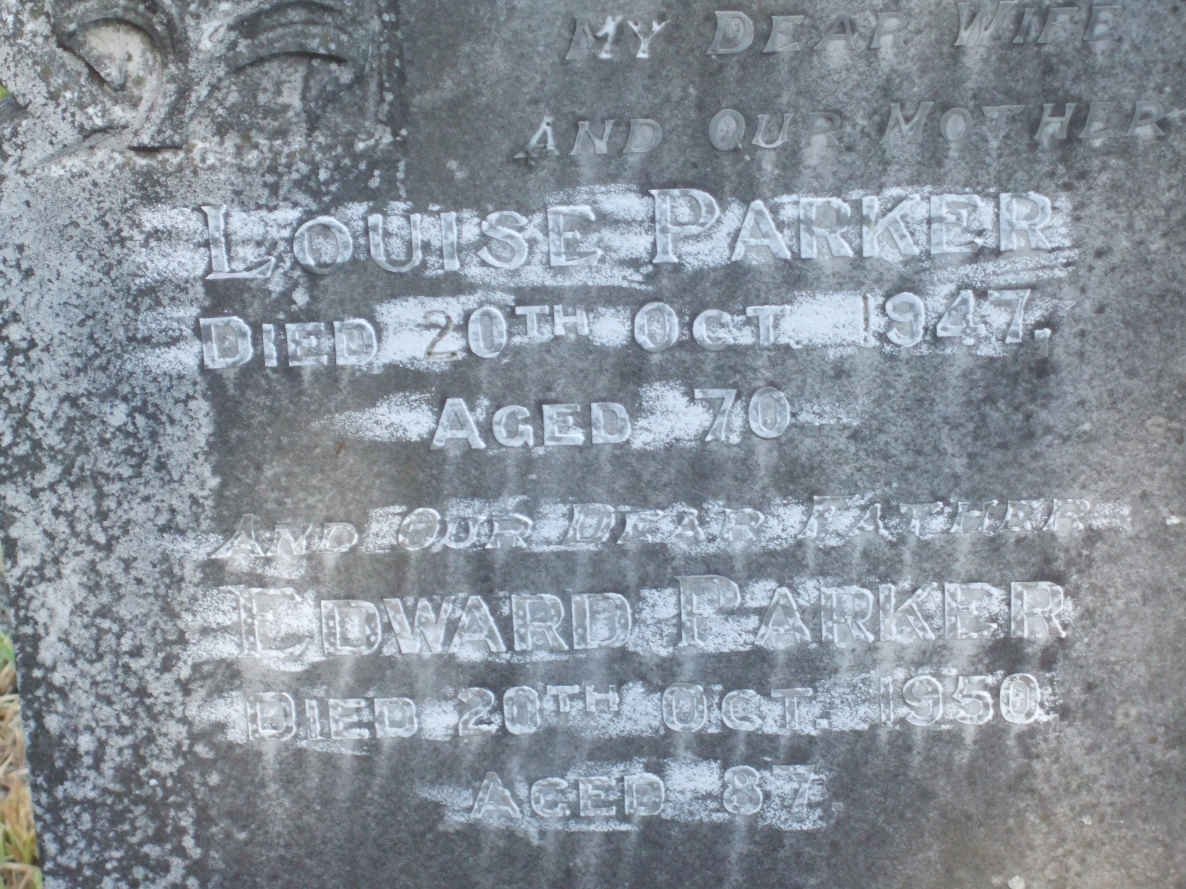 MY DEAR WIFE
AND OUR MOTHER
LOUISE PARKER
DIED 20TH OCT. 1947.
AGED 70
AND OUR DEAR FATHER
EDWARD PARKER
DIED 20TH OCT. 1950
AGED 87